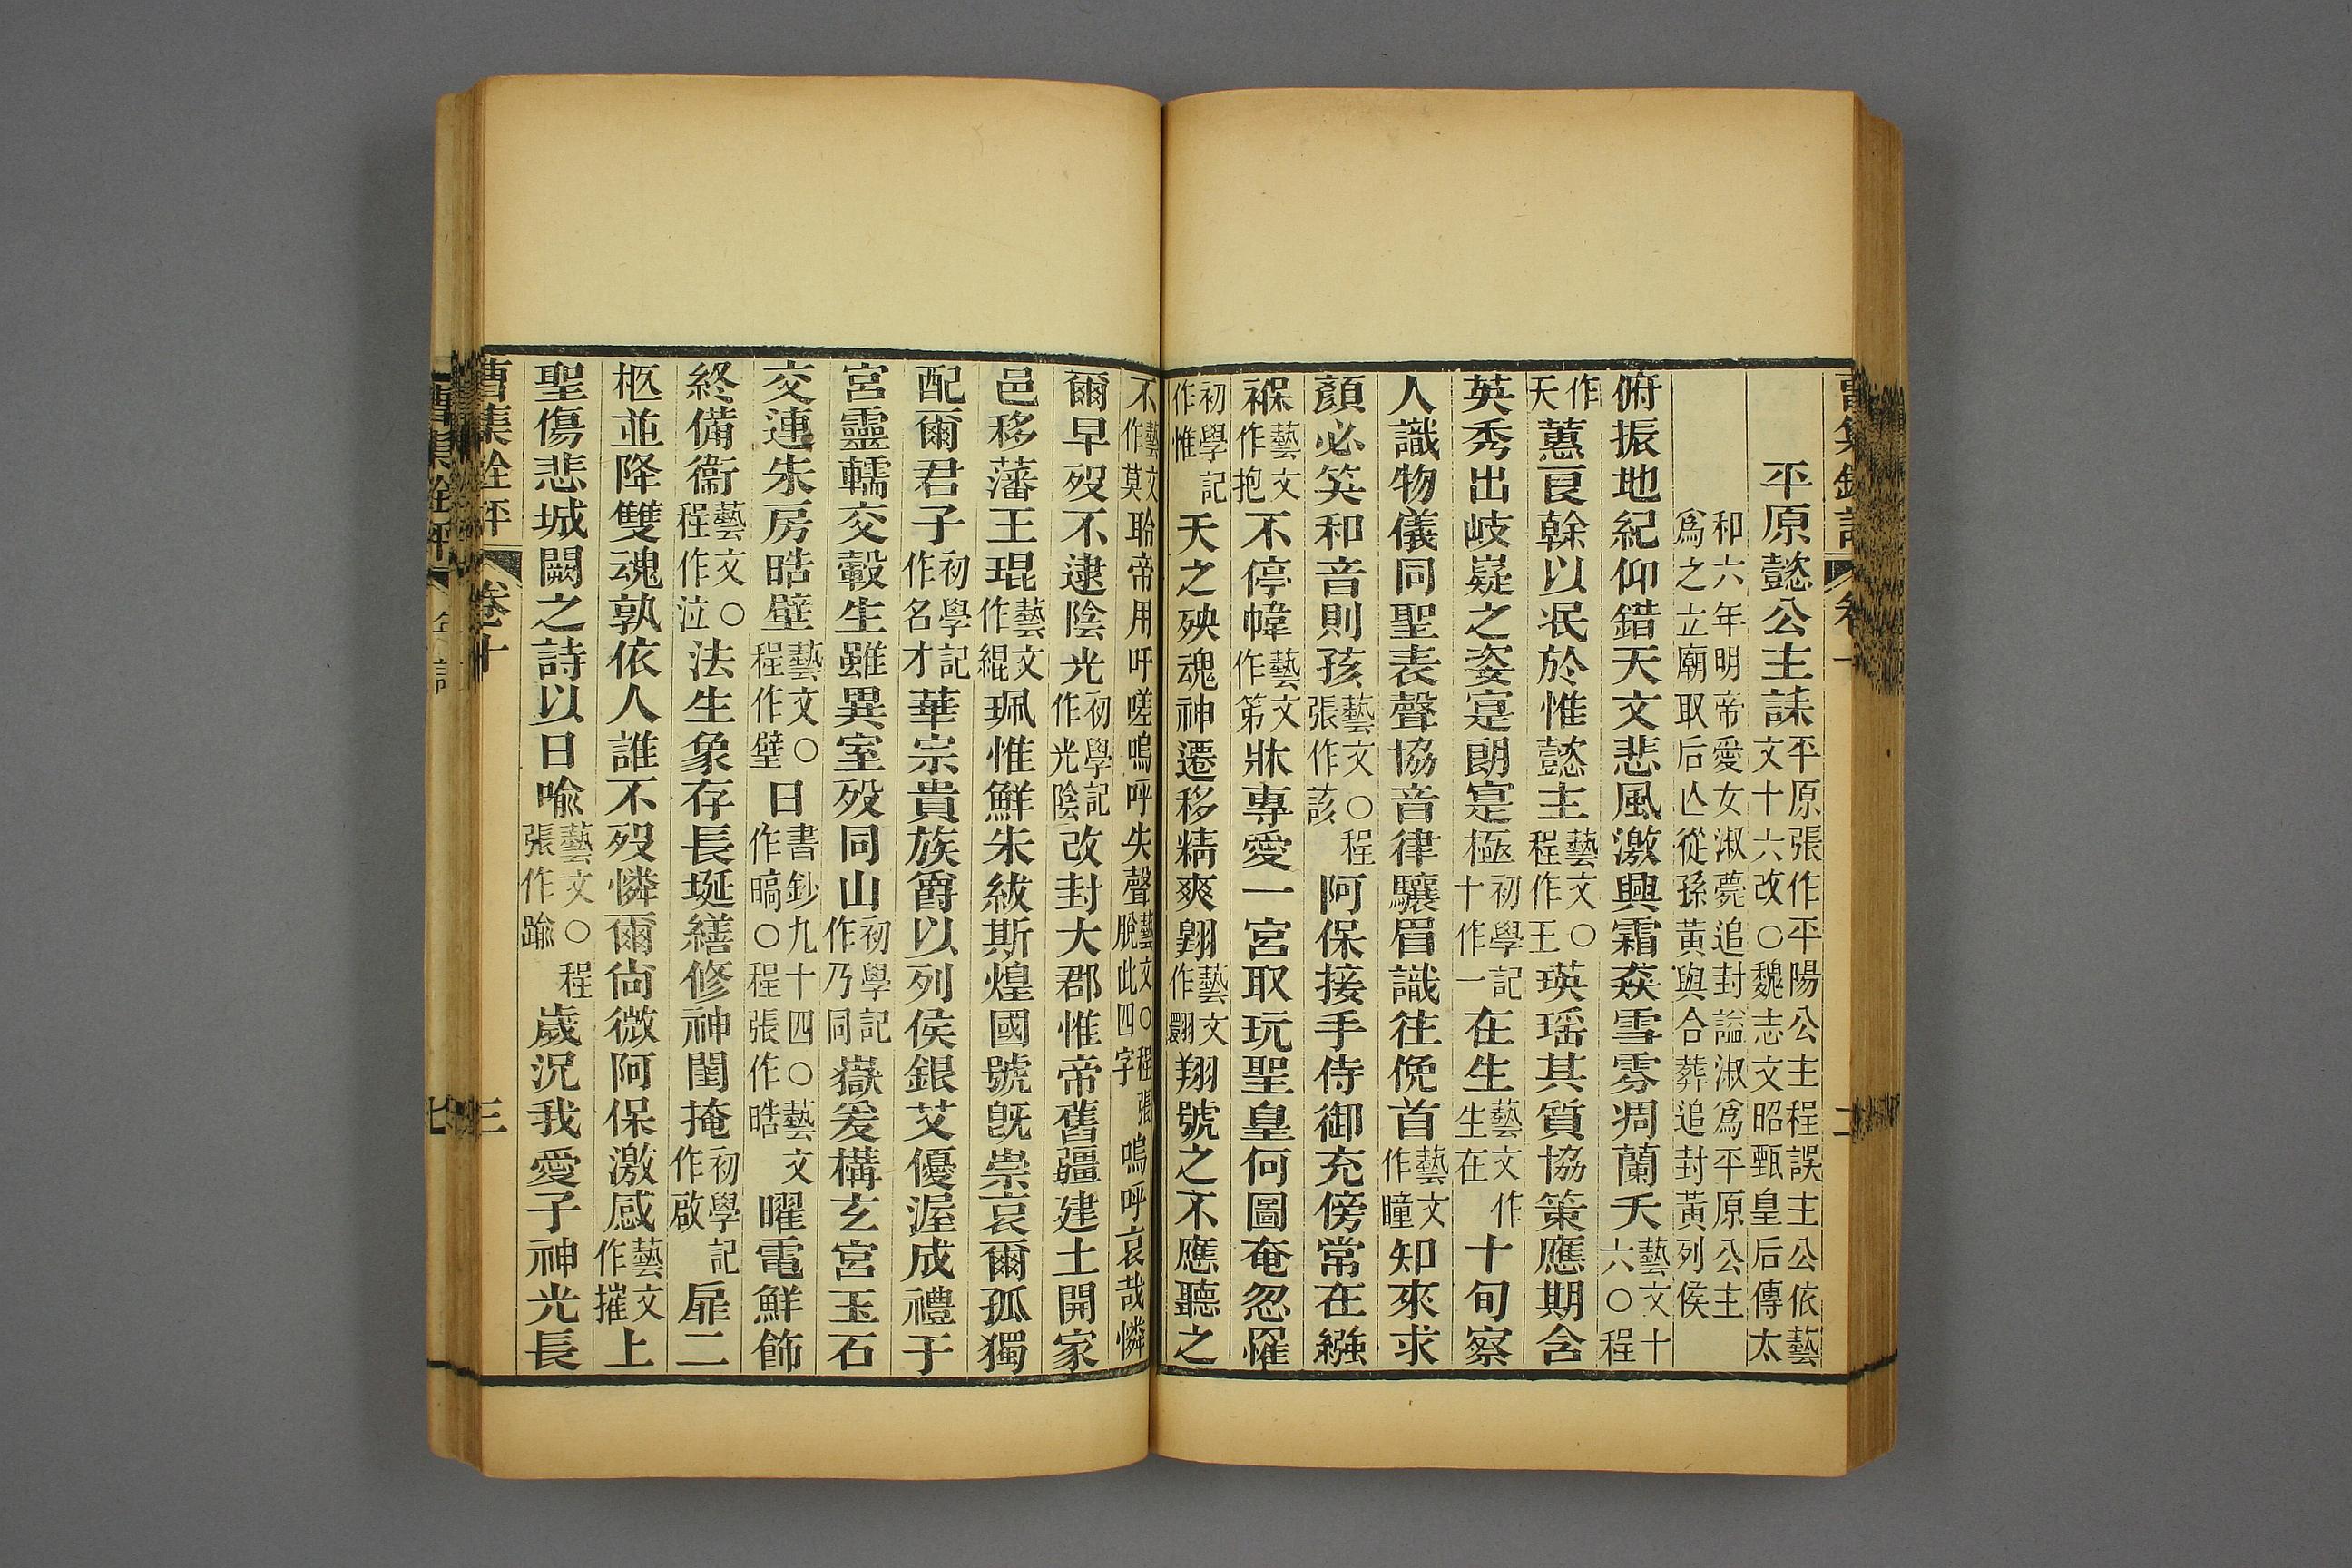 平原懿公主誄平原張作平陽公主程誤主公依藝文十六改○魏志文昭甄皇后傳太
和六年明帝愛女淑薨追封謚淑爲平原公主爲之立廟取后亾從孫黃與合葬追封黃列侯
俯振地紀仰錯天文悲風激興霜猋雪雰凋蘭夭藝文十六○程
作天蕙良榦以泯於惟懿主藝文○程作王瑛瑤其質協策應期含
英秀出岐嶷之姿寔朗寔極初學記十作一在生藝文作生在十旬察
人識物儀同聖表聲協音律驤眉識往俛首藝文作瞳知來求
顏必笑和音則孩藝文○程張作該阿保接手侍御充傍常在繈
褓藝文作抱不停幃藝文作第牀專愛一宮取玩聖皇何圖奄忽罹
初學記作惟天之殃魂神遷移精爽翱藝文作翾翔號之不應聽之
不藝文作莫聆帝用吁嗟嗚呼失聲藝文○程張脫此四字嗚呼哀哉憐
爾早歿不逮陰光初學記作光陰改封大郡惟帝舊疆建土開家
邑移藩王琨藝文作緄珮惟鮮朱紱斯煌國號旣崇哀爾孤獨
配爾君子初學記作名才華宗貴族爵以列侯銀艾優渥成禮于
宮靈輀交轂生雖異室歿同山初學記作乃同嶽爰構玄宮玉石
交連朱房晧壁藝文○程作璧日書鈔九十四○藝文作暠○程張作晧曜電鮮飾
終備衞藝文○程作泣法生象存長埏繕修神閨掩初學記作啟扉二
柩並降雙魂孰依人誰不歿憐爾尙微阿保激感藝文作摧上
聖傷悲城闕之詩以日喩藝文○程張作踰歲況我愛子神光長
曹集銓評
卷十
三